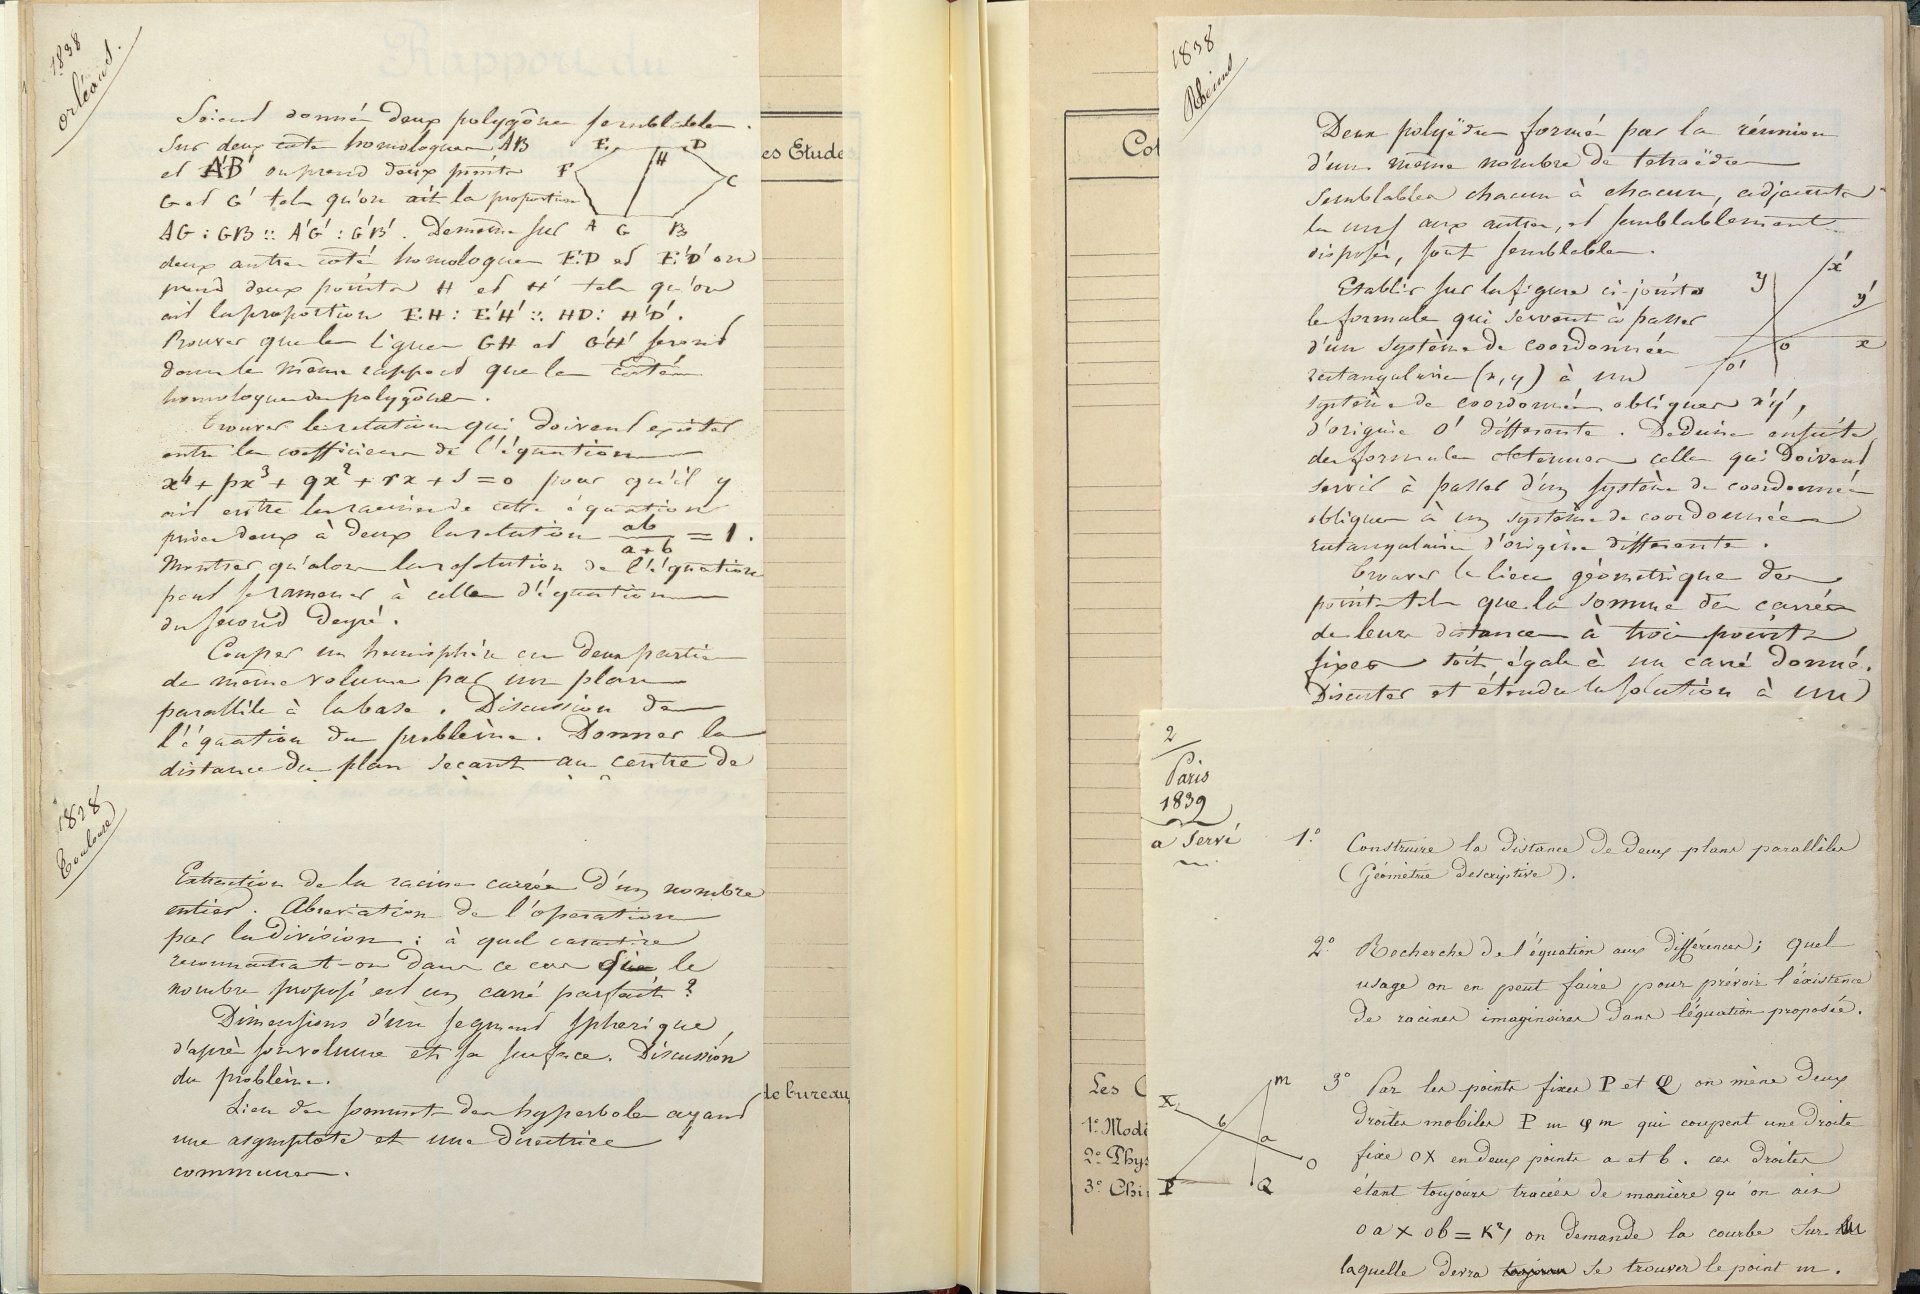 1838
orléans.
Soient donnés deux polygônes semblables.
Sur deux cotés homologues AB
et A'B' on prend deux points
G et G' tels qu'on ait la proportion
AG : GB :: A'G' : G'B'. De même sur
deux autres cotés homologues ED et E'D' on
prend deux points H et H' tels qu'on
ait la proportion EH : E'H' :: HD : H'D'.
Prouver que les lignes GH et G'H' seront
dans le même rapport que les cotés
homologues des polygônes.
E D
H
F
C
A G B
Trouver les relations qui doivent exister
entre les coefficiens de l'équation
x⁴ + px³ + qx² + rx + s = 0 pour qu'il y
ait entre les racines de cette équation
prises deux à deux la relation ab/a+b = 1.
Montrer qu'alors la résolution de l'équation
peut se ramener à celle d'équations
du second degré.
Couper un hemisphère en deux parties
de même volume par un plan
parallèle à la base. Discussion de
l'équation du problème. Donner la
distance du plan sécant au centre de
1828
Toulouse
Extraction de la racine carrée d'un nombre
entier. Abreviation de l'operation
par la division : à quel caractère
reconnaitrait-on dans ce cas que le
nombre proposé est un carré parfait ?
Dimensions d'un segment spherique,
d'après son volume et sa surface. Discussion
du problème.
Lieu des sommets des hyperboles ayant
une asymptote et une directrice
communes.
es Etudes
de bureau
1838
Rheims
Deux polyèdres formés par la réunion
d'un même nombre de tetraèdres
semblables chacun à chacun, adjacents
les uns aux autres, et semblablement
disposés, sont semblables.
Etablir sur la figure ci-jointe
les formules qui servent à passer
d'un système de coordonnées
rectangulaires (x, y) à un
système de coordonnées obliques x'y',
d'origine O' différente. Deduire ensuite
des formules obtenues celles qui doivent
servir à passer d'un système de coordonnées
obliques à un système de coordonnées
rectangulaires d'origine différente.
y x'
y'
o x
o'
Trouver le lieu géometrique des
points tels que la somme des carrés
de leurs distances à trois points
fixes soit égale à un carré donné.
Discuter et étendre la solution à un
Col
2
Paris
1839
a servi
1.° Construire la distance de deux plans parallèles
(Géométrie descriptive).
2.° Recherche de l'équation aux différences ; quel
usage on en peut faire pour prévoir l'éxistence
de racines imaginaires dans l'équation proposée.
3° Par les points fixes P et Q on mène deux
droites mobiles P m Q m qui coupent une droite
fixe OX en deux points a et b. ces droites
étant toujours tracées de manière qu'on ait
oa × ob = K², on demande la courbe sur
laquelle devra toujours se trouver le point m.
m
X
b
a
O
P Q
Les C
1° Modè
2° Phys
3° Chi